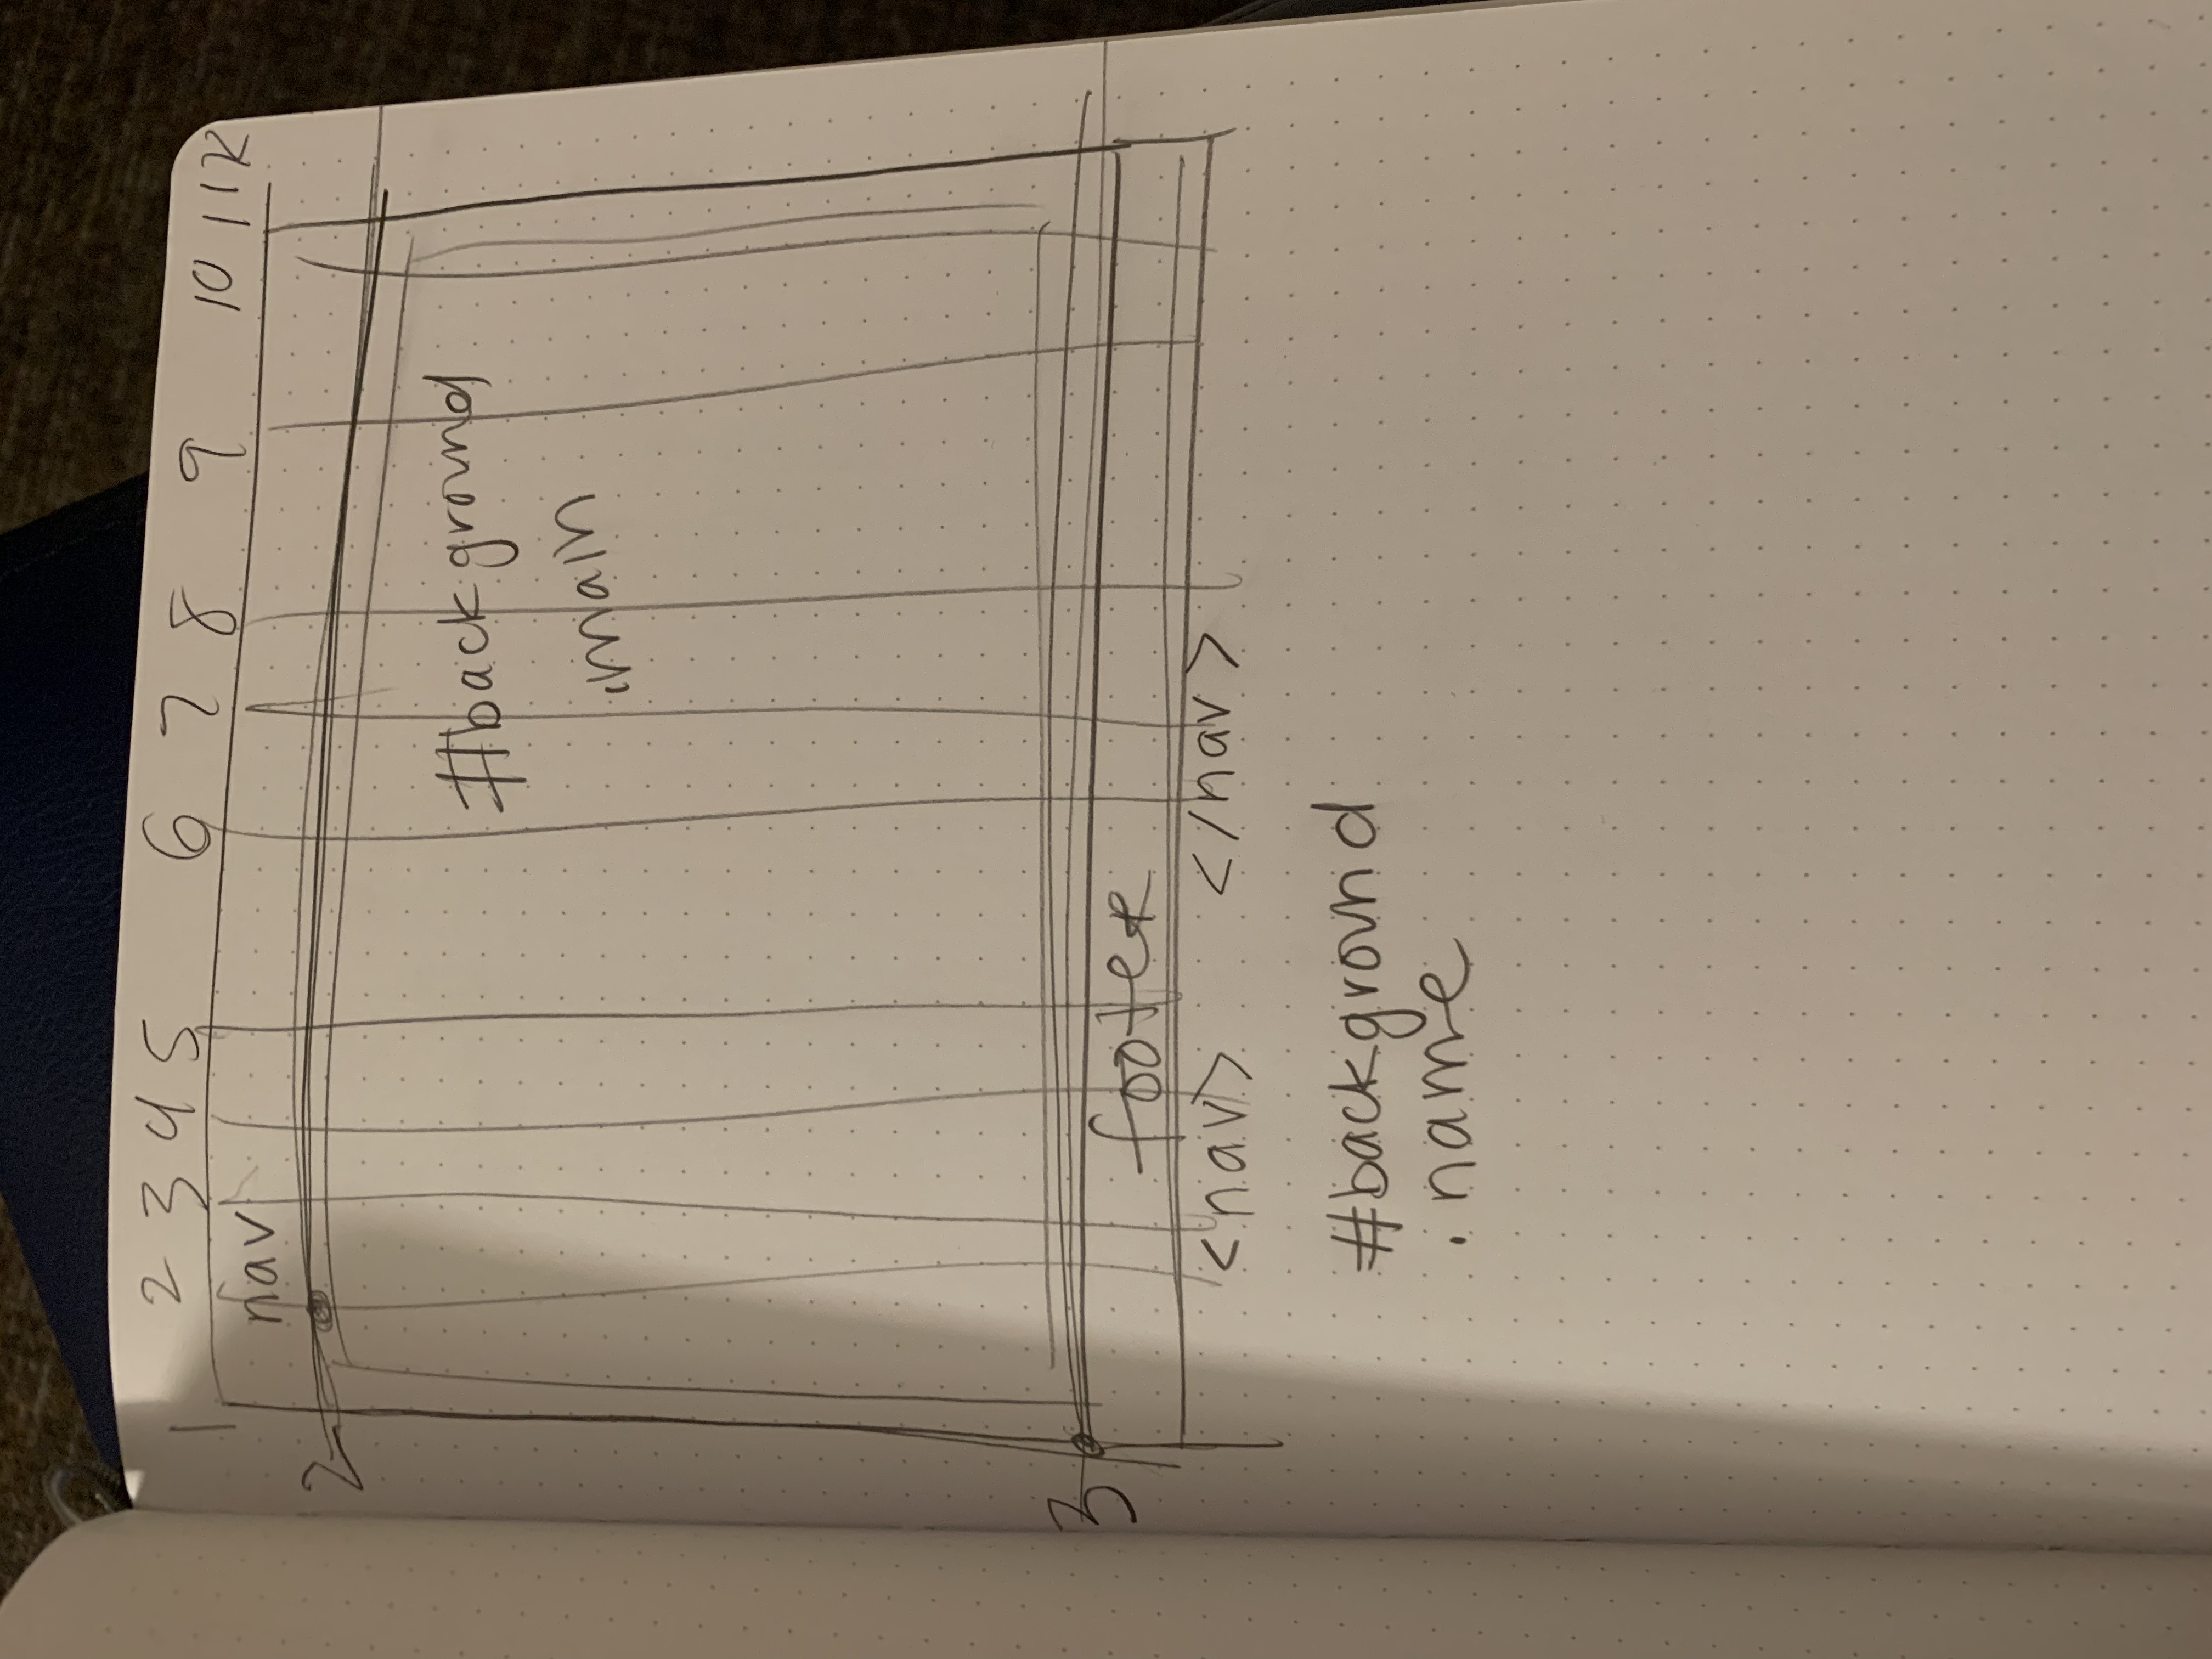 1 2 3 4 5 6 7 8 9 10 11 12
nav
2
#background
.main
3
footer
<nav> </nav>
#background
.name